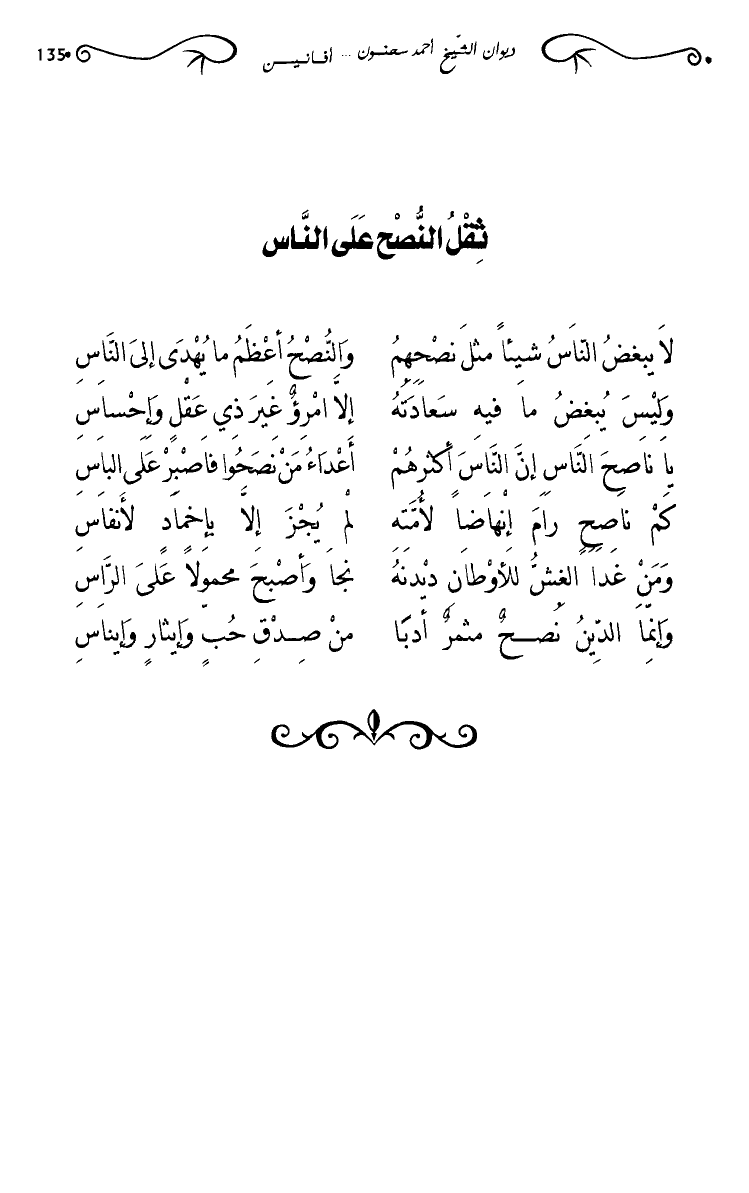 ديوان الشّيخ أحمد سحنون ... أفانيـــن 135
ثِقْلُ النُّصْحِ عَلَى النَّاس
لاَ يبغضُ النّاسُ شيئاً مثلَ نصْحِهِمُ وَالنُّصْحُ أعْظَمُ ما يُهْدَى إلىَ النَّاسِ
وَلَيْسَ يُبغضُ ما فيه سَعادَتَهُ إلاَّ امْرِؤٌ غَيرَ ذي عَقْلٍ وَإحْساسِ
يا ناصحَ النَّاسِ إنَّ النَّاسَ أكثرهُمْ أعْدَاءُ مَنْ نصَحُوا فاصْبِرْ عَلَى الباَسِ
كَمْ ناصحٍ رامَ إنْهاضاً لأمَّته لمْ يُجْزَ إلاَّ بإخمادٍ لأَنفاَسِ
وَمَنْ غَداَ الغشُّ للأوْطانِ ديْدنهُ نجا وَأصْبحَ محمولاً عَلىَ الرَّاسِ
وَإنمّا الدِّينُ نُصـــحٌ مثمرٌ أدبًا منْ صِـدْقِ حُبٍّ وَإيثارٍ وَإيناسِ